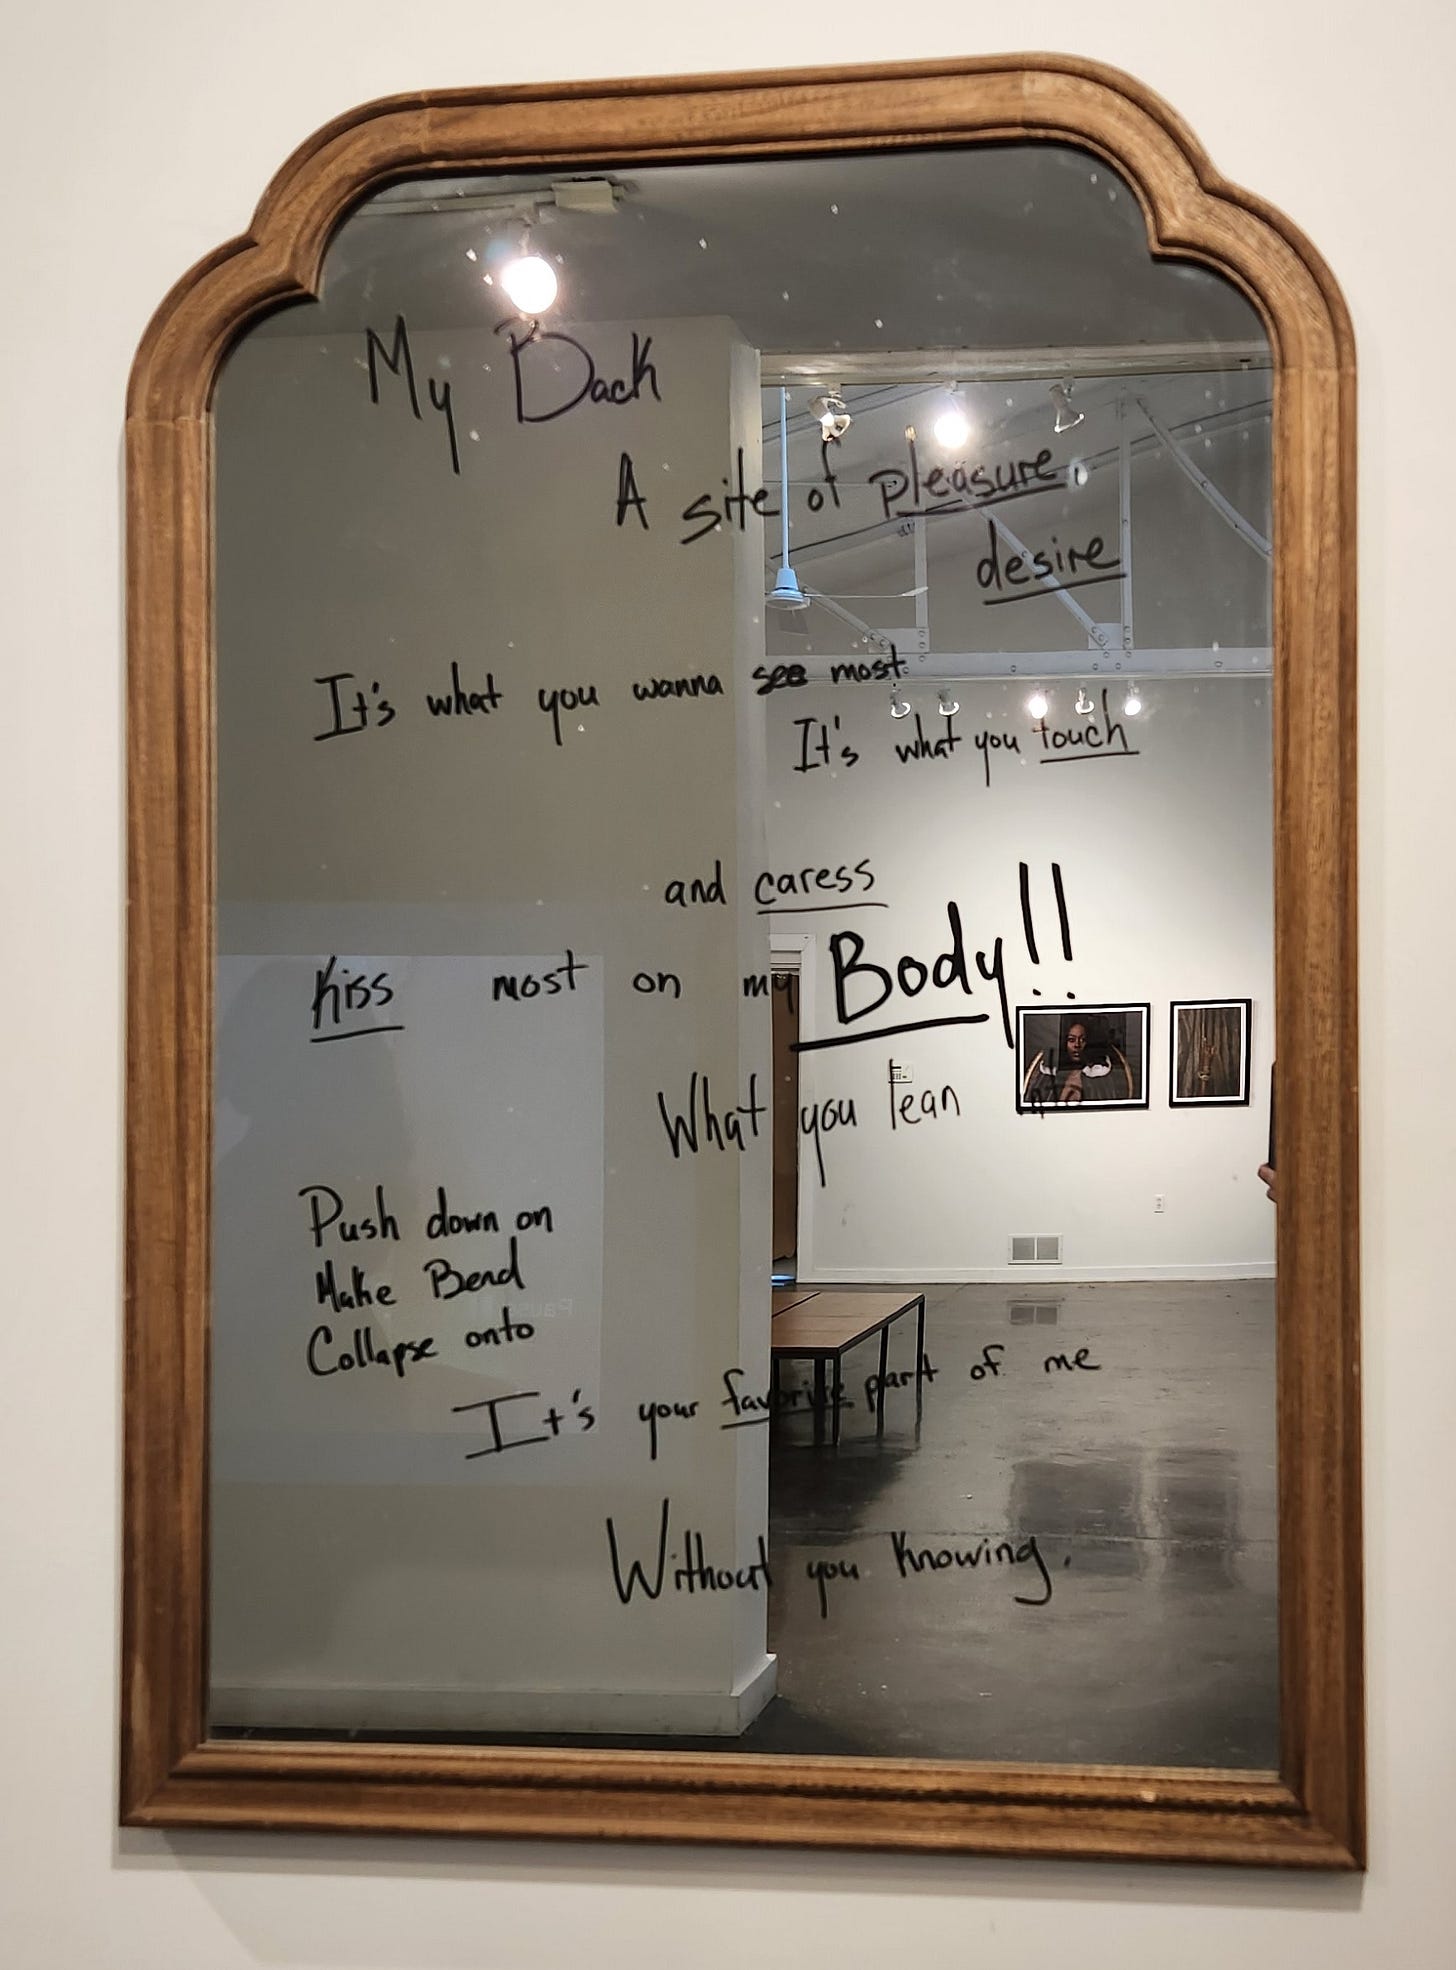 My Back
A site of pleasure,
desire
It's what you wanna see most
It's what you touch
and caress
Kiss most on my Body!!
What you lean into
Push down on
Make Bend
Collapse onto
It's your favorite part of me
Without you knowing.